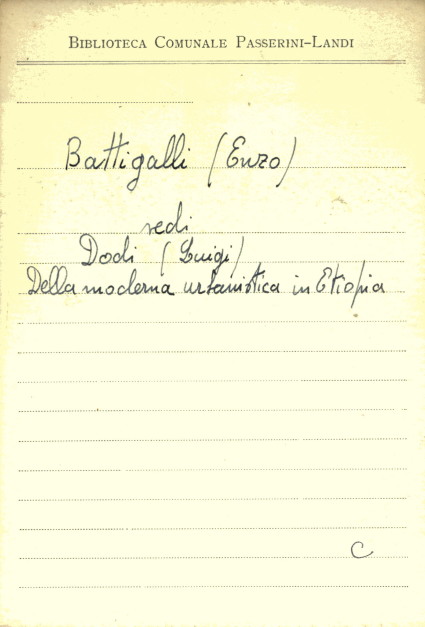 BIBLIOTECA COMUNALE PASSERINI-LANDI
Battigalli (Enzo)
vedi
Dodi (Luigi)
Della moderna urbanistica in Etiopia
C